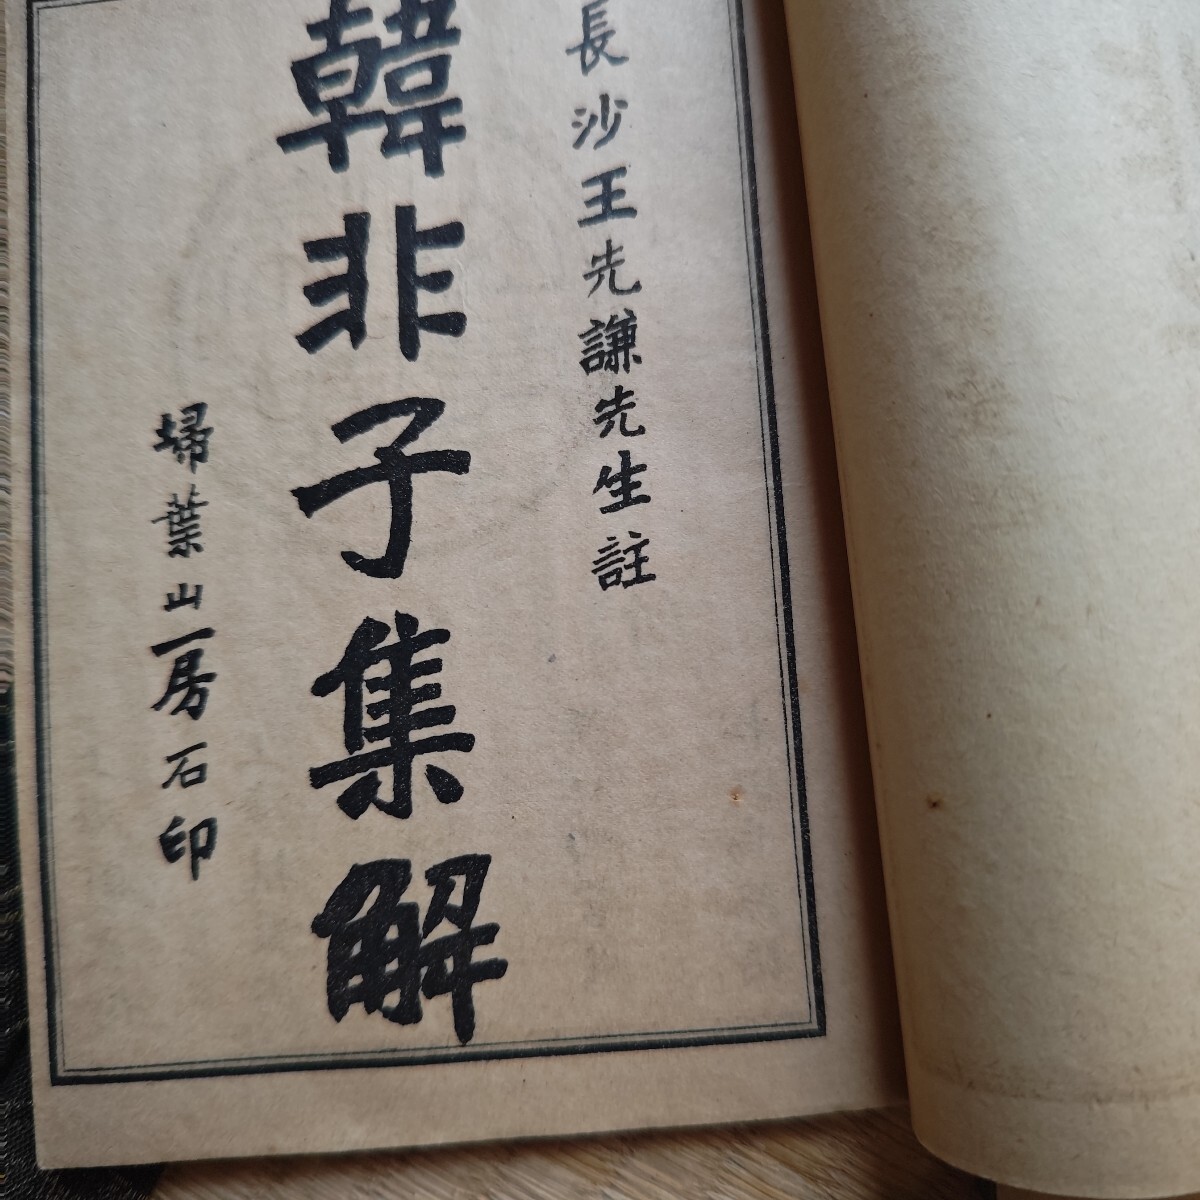 長沙王先謙先生註
韓非子集解
埽葉山房石印